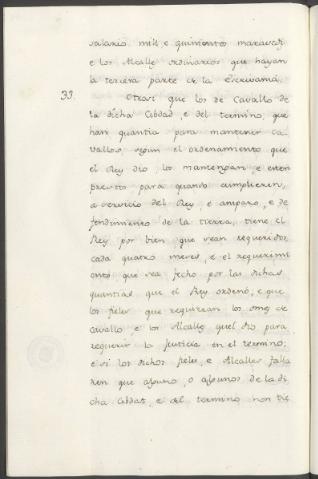 salario mill e quinientos maravedi
e los Alcalles ordinarios que hayan
la tercera parte de la escrivania.
33. Otrosi que los de Cavallo de
la dicha Cibdad, e del termino, que
han quantia para mantener ca-
vallos, segun el ordenamiento que
el Rey dio, los mantengan, e esten
prestos para quando cumplieren,
a servicio del Rey, e amparo, e de
fendimiento de la tierra, tiene el
Rey por bien que sean requeridos
cada quatro meses, e el requerimi
ento que sea fecho por las dichas
quantias que el Rey ordenó, e que
los fieles que requieran los omes de
cavallo, e los Alcalles quel dio para
requerir la Justicia en el termino;
e si los dichos fieles, e Alcalles falla
ren que alguno, o algunos de la di
cha Cibdat, e del termino non tie